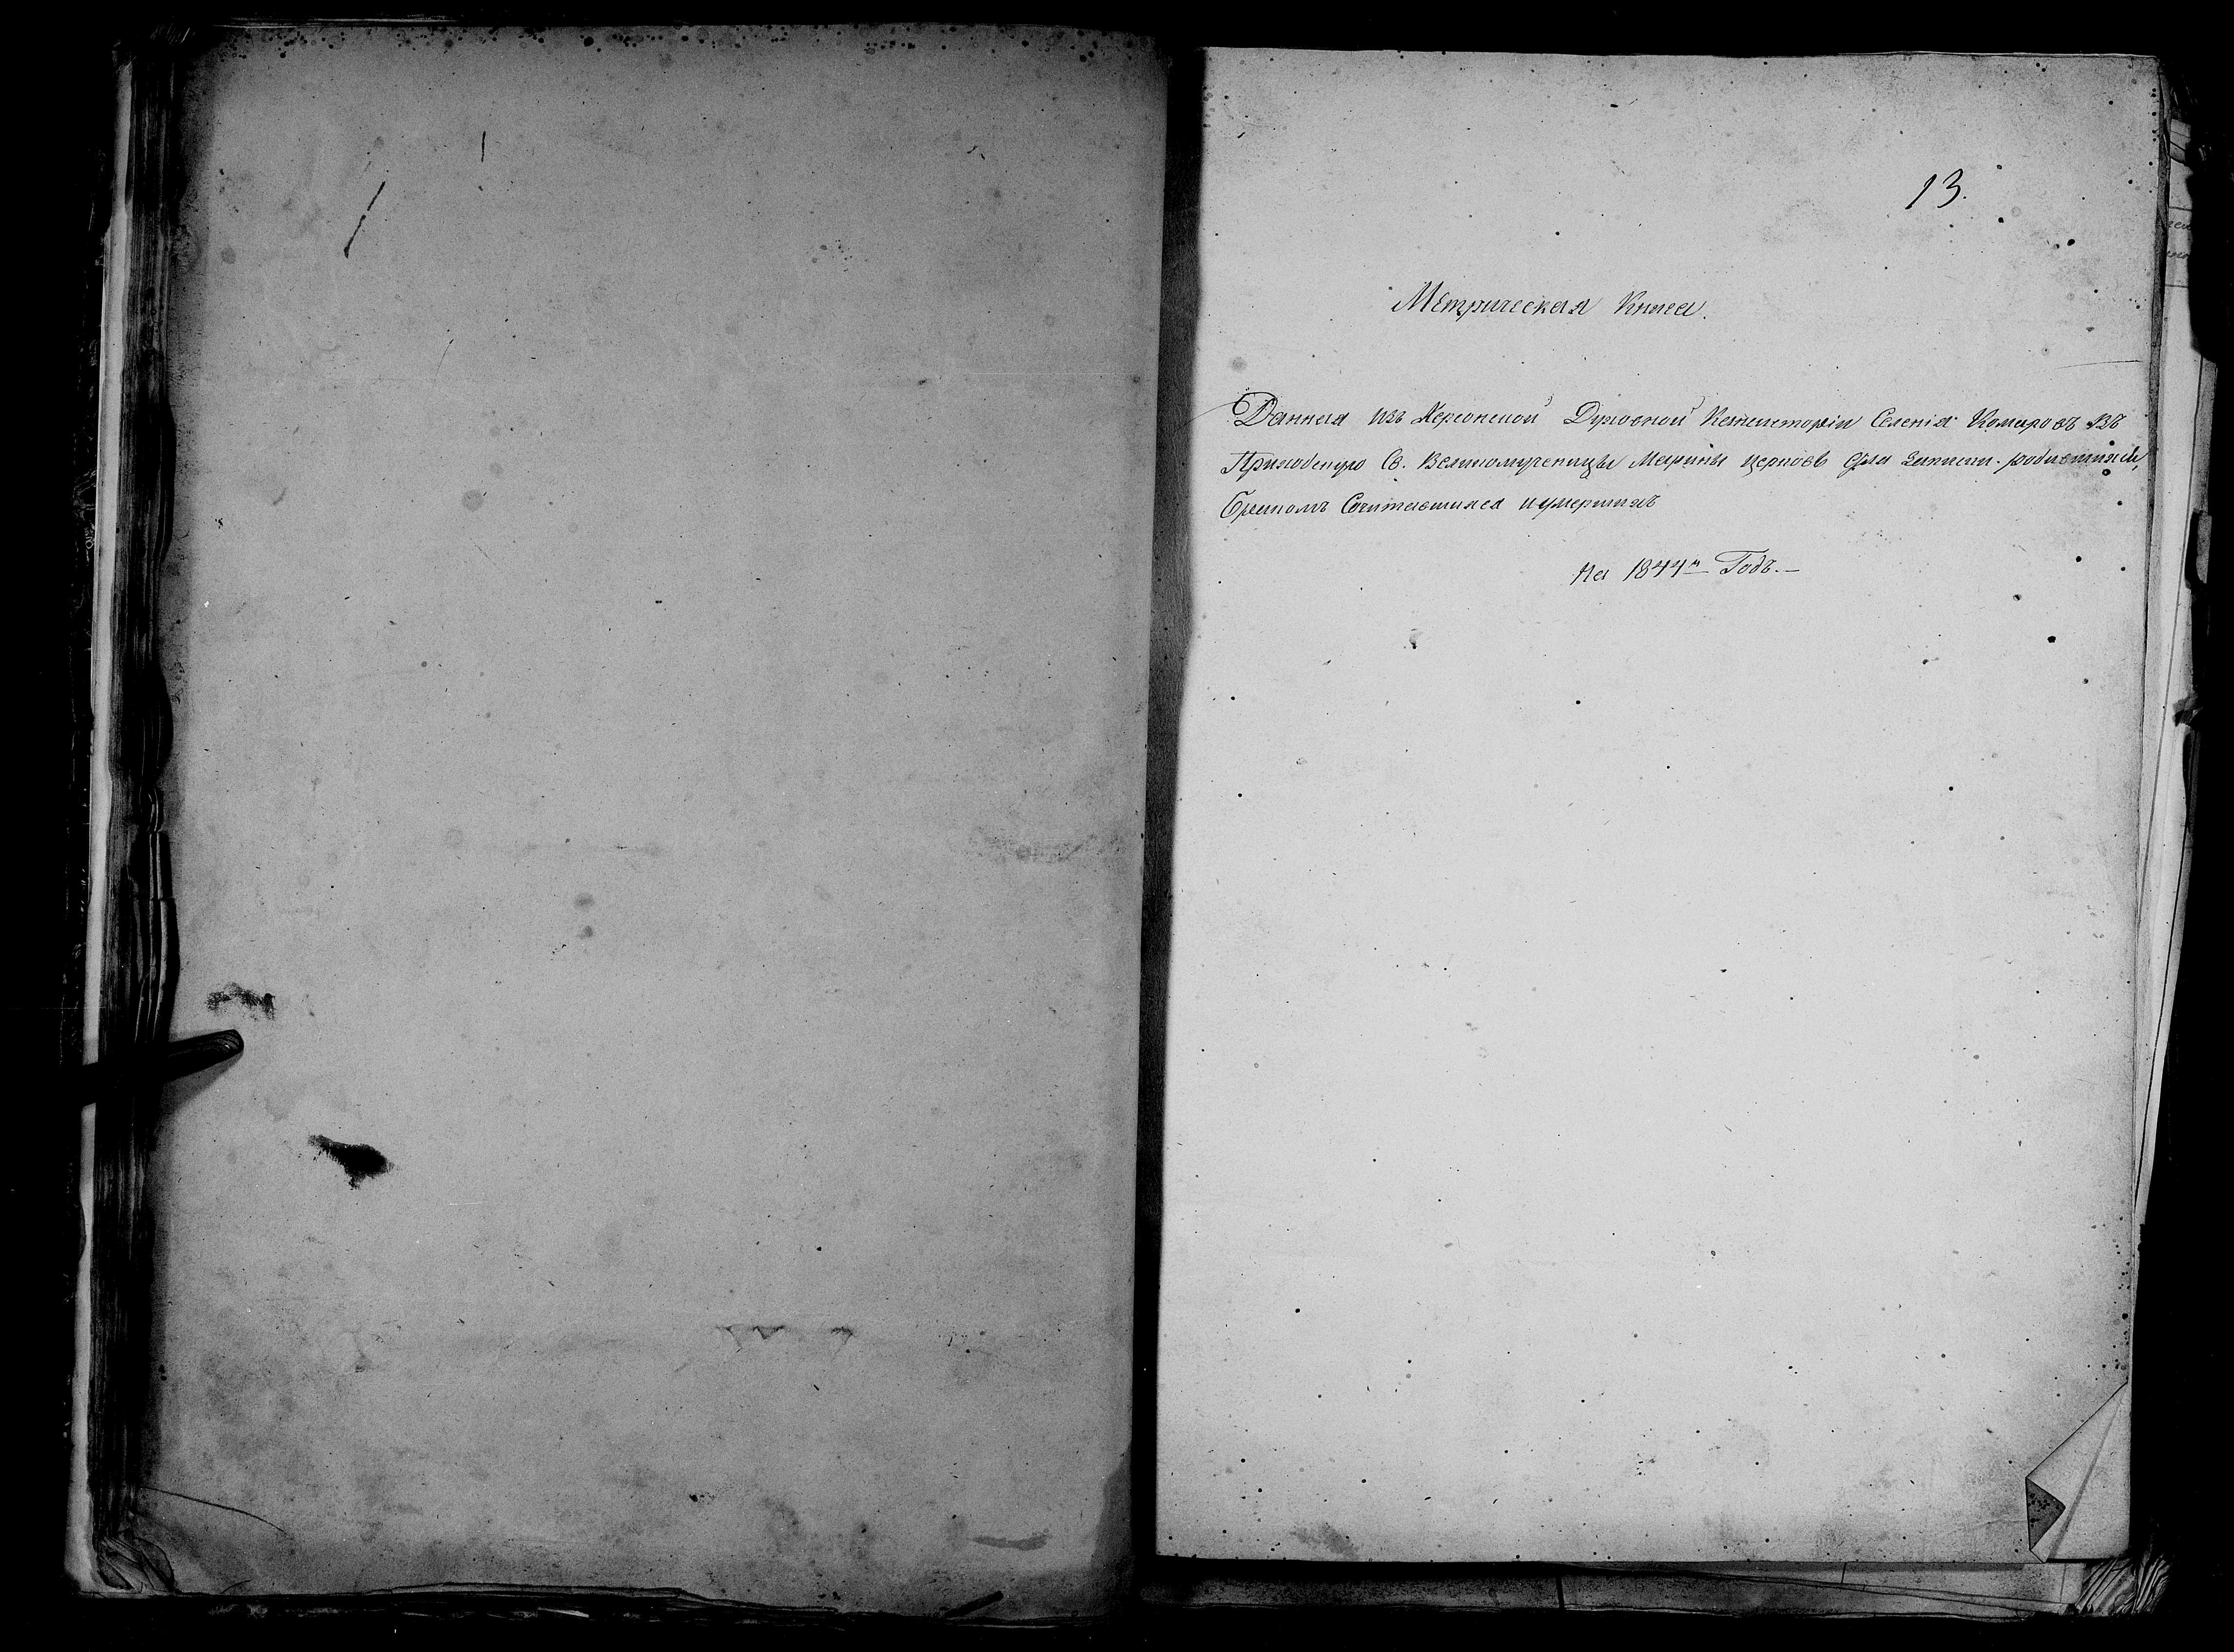 13.
Метрическая Книга.
Данная изъ Херсонской Духовной Консисторіи Селенія Комаровъ Въ
Приходскую Св. Великомученицы Марины церковь для записи родившихся,
Бракомъ Сочитавшихся и умершихъ
На 1844й Годъ.—